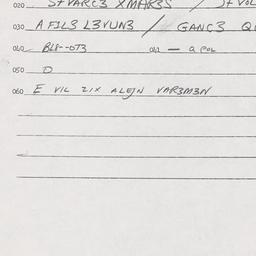 020 STVARC3 XMAR3S / JF VOL
030 AFIL3 L3VUN3 / GANC3 Q
040 BL8--OT3 042 — a POL
050 D
060 E VIL ZIX ALEJN VAR3M3N